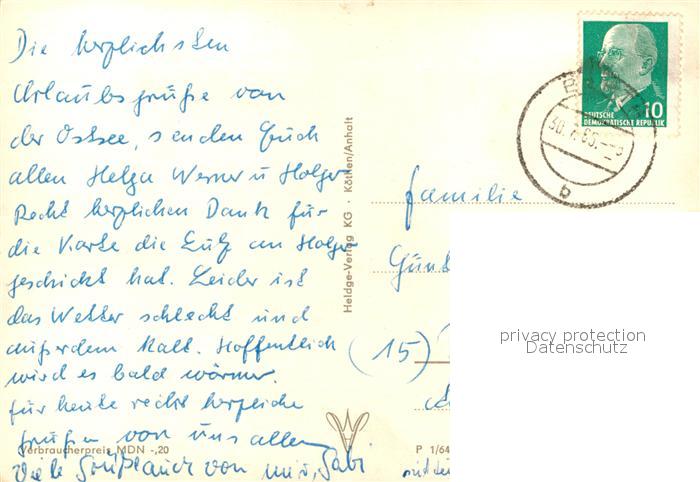 Die herzlichsten
Urlaubsgrüße von
der Ostsee, senden Euch
allen Helga Werner u Holger
Recht herzlichen Dank für
die Karte die Lutz an Holger
geschickt hat. Leider ist
das Wetter schlecht und
außerdem kalt. Hoffentlich
wird es bald wärmer.
für heute recht herzliche
Grüßen von uns allen
Viele Grüße auch von mir, Gabi
Verbraucherpreis MDN -,20
Heldge-Verlag KG · Köthen/Anhalt
P 1/64
10
DEUTSCHE
DEMOKRATISCHE REPUBLIK
b
familie
Günt
(15)
privacy protection
Datenschutz